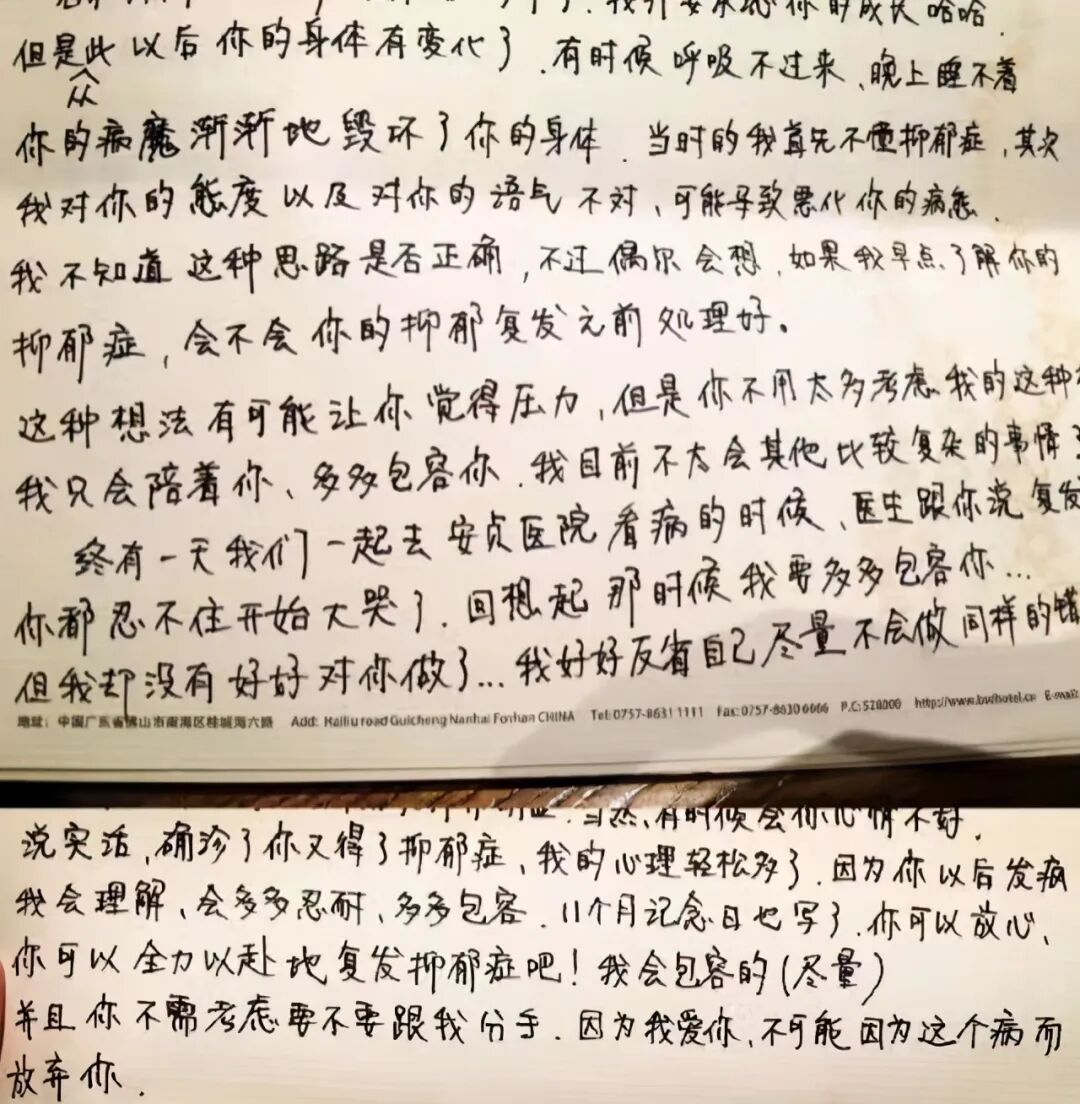 我并要求他你的成长哈哈.
但是从此以后你的身体有变化了.有时候呼吸不过来、晚上睡不着
你的病魔渐渐地毁坏了你的身体.当时的我首先不懂抑郁症,其次
我对你的态度以及对你的语气不对、可能导致恶化你的病态.
我不知道这种思路是否正确,不过偶尔会想,如果我早点了解你的
抑郁症,会不会你的抑郁复发之前处理好。
这种想法有可能让你觉得压力,但是你不用太多考虑我的这种
我只会陪着你、多多包容你.我目前不太会其他比较复杂的事情
终有一天我们一起去安贞医院看病的时候、医生跟你说复发
你都忍不住开始大哭了.回想起那时候我要多多包容你...
但我却没有好好对你做了...我好好反省自己尽量不会做同样的错
地址:中国广东省佛山市南海区桂城海六路 Add: Hailiu road Guicheng Nanhai Foshan CHINA Tel:0757-8631 1111 Fax:0757-8630 6666 P.C:528000 E-mail:
当然、有时候会你心情不好.
说实话,确诊了你又得了抑郁症、我的心理轻松多了.因为你以后发病
我会理解、会多多忍耐、多多包容.11个月记念日也写了.你可以放心、
你可以全力以赴地复发抑郁症吧!我会包容的(尽量)
并且你不需考虑要不要跟我分手.因为我爱你、不可能因为这个病而
放弃你.